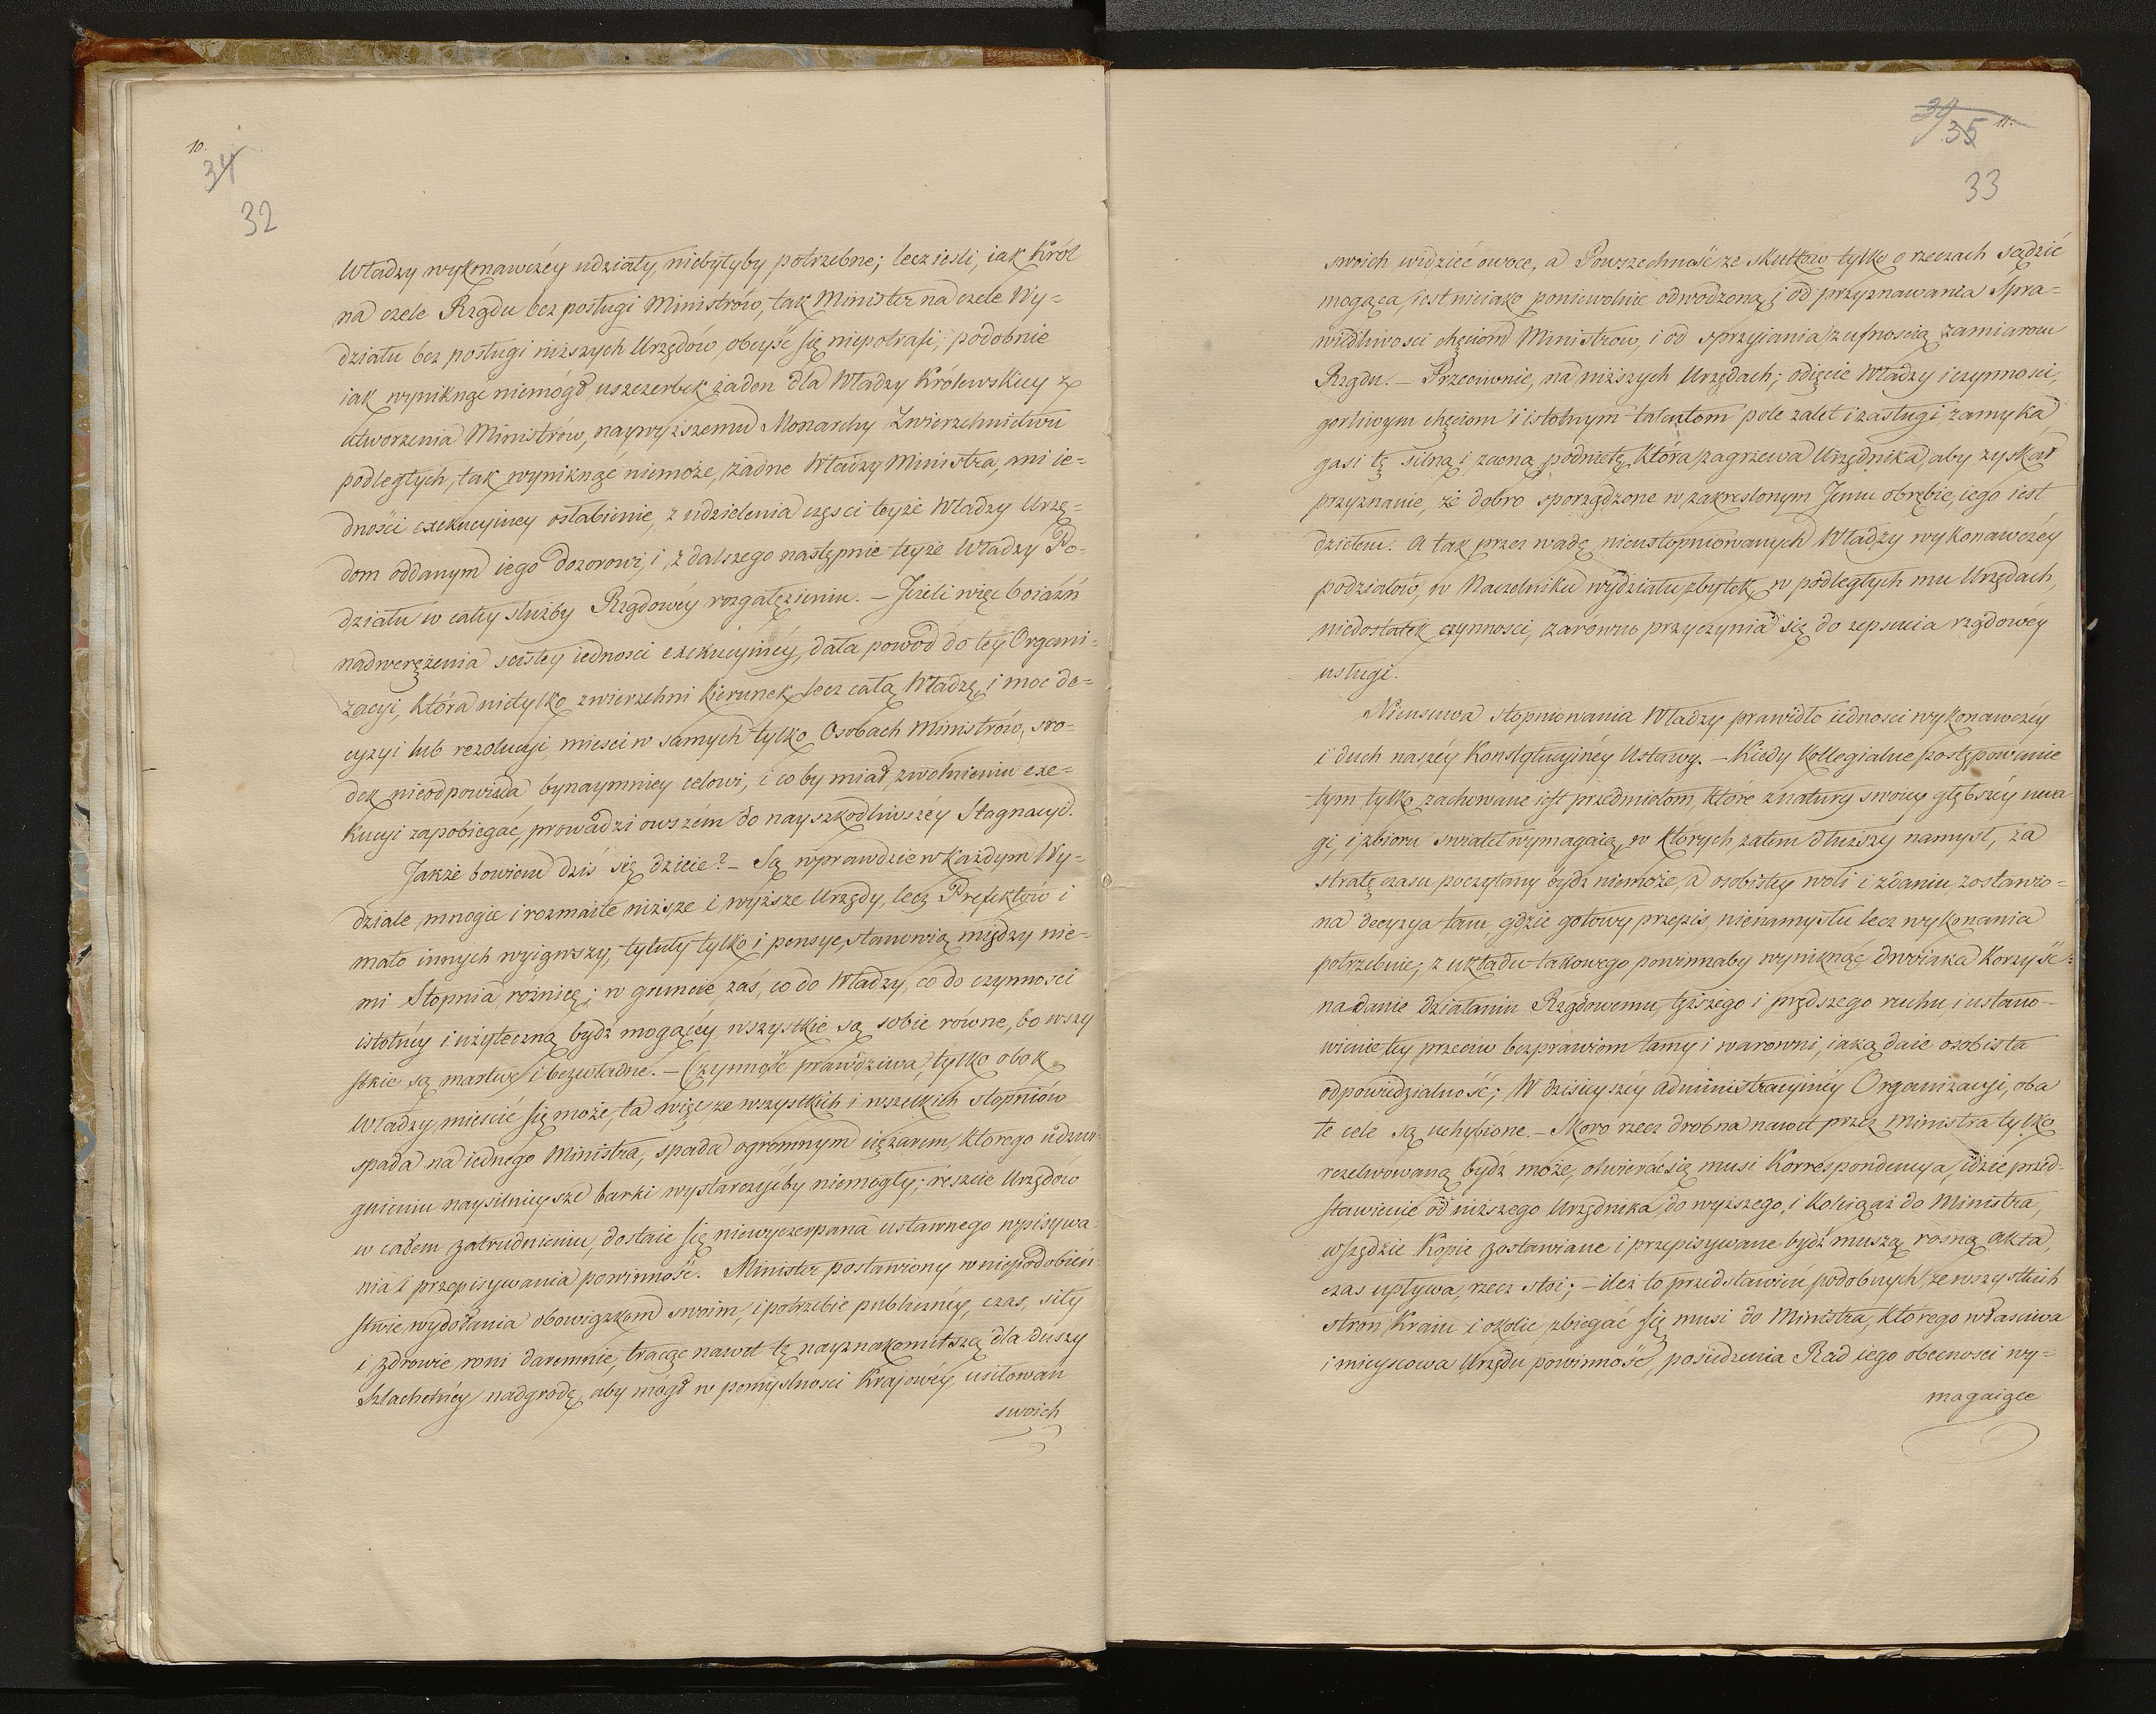 10.
34
32
Władzy wykonawczéy udziały, niebyłyby potrzebne; lecz ieśli, iak Król
na czele Rządu bez posługi Ministrów, tak Minister na czele Wy=
działu bez posługi niższych Urzędów obeyść się niepotrafi; podobnie
iak wyniknąć niemógł uszczerbek żaden dla Władzy Królewskiey z
utworzenia Ministrów, naywyższemu Monarchy Zwierzchnictwu
podległych, tak wyniknąć niemoże, żadne Władzy Ministra, ani ie=
dności exekucyiney osłabienie, z udzielenia części teyże Władzy Urzę=
dom oddanym iego Dozorowi, i z dalszego następnie teyże Władzy Po-
działu w całey służby Rządowéy rozgałęzieniu. – Jeżeli więc boiaźń
nadwerężenia scisłey iedności exekucyinéy, dała powód do téy Organi-
zacyi, która nietylko zwierzchni kierunek lecz całą Władzę, i moc de=
cyzyi lub rezolucyi, mieści w samych tylko Osobach Ministrów, śro-
dek nieodpowiada bynaymniey celowi, i co by miał zwolnieniu exe=
kucyi zapobiegać, prowadzi owszém do nayszkodliwszéy Stagnacyi.
Jakże bowiem dziś się dzieie? – Są wprawdzie w każdym Wy=
dziale mnogie i rozmaite niższe i wyższe Urzędy, lecz Prefektów i
mało innych wyiąwszy, tytuły tylko i pensye, stanowią między nie-
mi Stopnia różnicę; w gruncie zaś, co do Władzy, co do czynności
istotnéy i użyteczną bydź mogącéy wszystkie są sobie równe, bo wszy
stkie są martwe i bezwładne. – Czynność prawdziwa, tylko obok
Władzy mieścić się może, ta więc ze wszystkich i wszelkich stopniów
spada na iednego Ministra, spada ogromnym ciężarem, którego udzwi-
gnieniu naysilnieysze barki wystarczyćby niemogły; reszcie Urzędów
w całem zatrudnieniu, dostaie się niewyczerpana ustawnego wpisywa-
nia i przepisywania powinność. Minister postawiony w niepodobień-
stwie wydołania obowiązkom swoim, i potrzebie publicznéy, czas, siły
i zdrowie roni daremnie, tracąc nawet tę nayznakomitszą dla duszy
szlachetnéy nadgrodę, aby mógł w pomyślności Krajowéy, usiłowań
swoich
34
35
11.
33
swoich widzieć owoce, a Powszechność ze skutków tylko o rzeczach sądzić
mogąca, iest nieiako poniewolnie odwodzoną, i od przyznawania Spra=
wiedliwości chęciom Ministrów, i od sprzyiania z ufnością zamiarom
Rządu. – Przeciwnie, na niższych Urzędach; odięcie Władzy i czynności,
gorliwym chęciom i istotnym talentom pole zalet i zasługi zamyka
gasi tę silną i zacną podnietę, która zagrzewa Urzędnika, aby zyskał
przyznanie, że dobro sporządzone w zakreslonym Jemu obrębie, iego iest
dziełem. A tak przez wadę nieustopniowanych Władzy wykonawczéy
podziałów, w Naczelniku wydziału zbytek, w podległych mu Urzędach,
niedostatek czynności, zarówno przyczynia się do zepsucia rządowéy
usługi.
Nieusuwa stopniowania Władzy prawidło iedności wykonawczéy
i duch naszéy Konstytucyinéy Ustawy. – Kiedy Kollegialne postępowanie
tym tylko zachowane iest przedmiotom, które z natury swoiey głębszéy uwa
gi, i zbioru swiateł wymagaią, w których zatem dłuższy namysł, za
stratę czasu poczytany bydź niemoże, a osobistey woli i zdaniu zostawio=
na decyzya tam, gdzie gotowy przepis, nienamysłu lecz wykonania
potrzebuie; z układu takowego powinnaby wyniknąć dwoiaka korzyść:
nadanie działaniu Rządowemu tęższego i prędszego ruchu, i ustano-
wienie téy przeciw bezprawiom tamy i warowni, iaką daie osobista
odpowiedzialność; W dzisieyszéy administracyinéy Organizacyi, oba
te cele są uchybione. – Skoro rzecz drobna nawet przez Ministra tylko
rezolwowaną bydź może, otwieráć się musi Korrespondencya, idzie przed-
stawienie od niższego Urzędnika do wyższego, i koleią aż do Ministra,
wszędzie Kopie zostawiane i przepisywane bydź muszą, rosną akta,
czas upływa, rzecz stoi; – ileż to przedstawień podobnych, ze wszystkich
stron Kraiu i okolic zbiegać się musi do Ministra, którego właściwa
i mieyscowa Urzędu powinność, posiedzenia Rad iego obecności wy=
magaiące